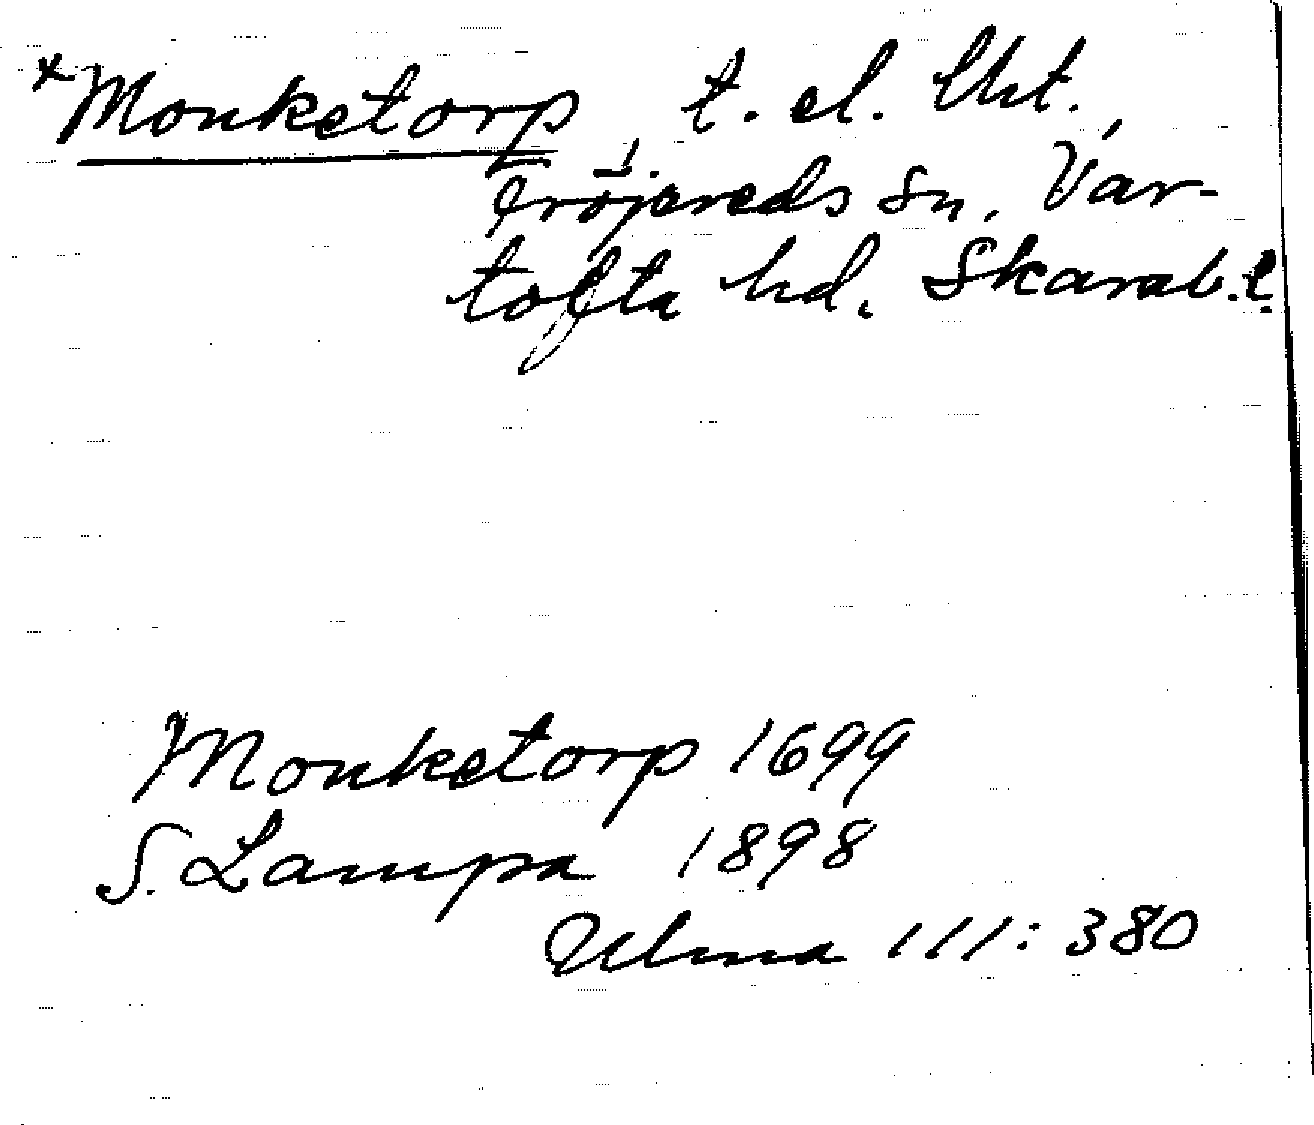 *Monketorp t. el. lht.,
Fröjereds sn, Var-
tofta hd. Skarab. l.
Monketorp 1699
S. Lampa 1898
Ulma 111: 380